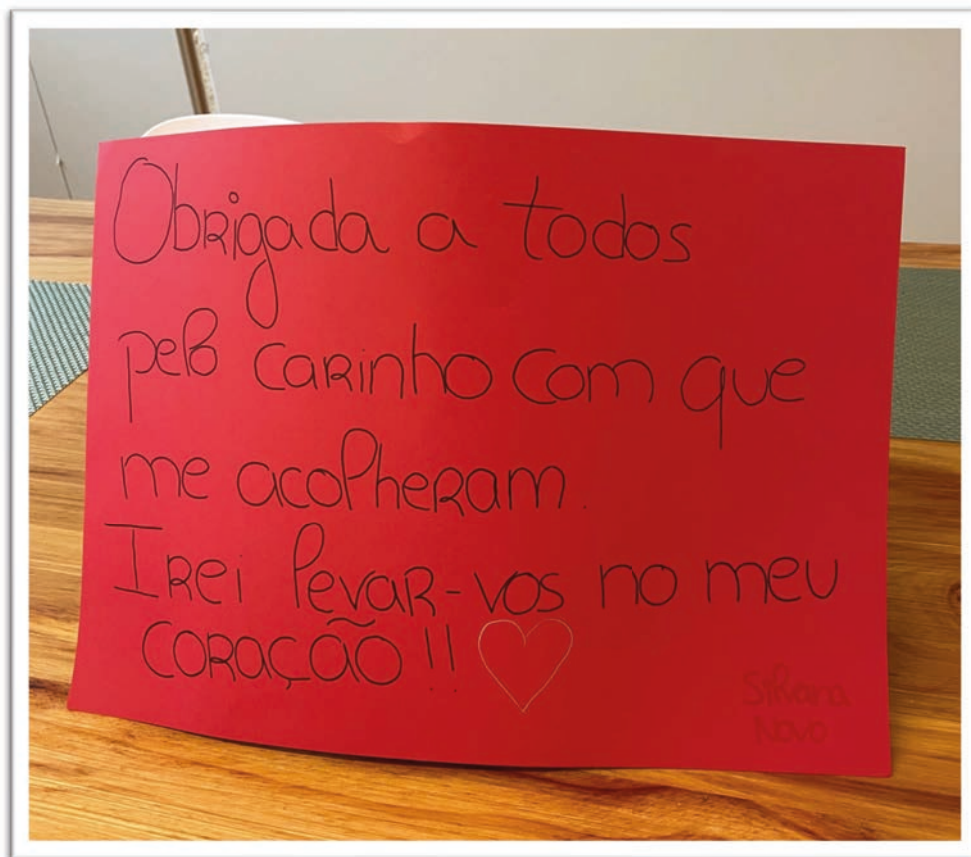 Obrigada a todos
pelo carinho com que
me acolheram.
Irei levar-vos no meu
CORAÇÃO!!
Novo